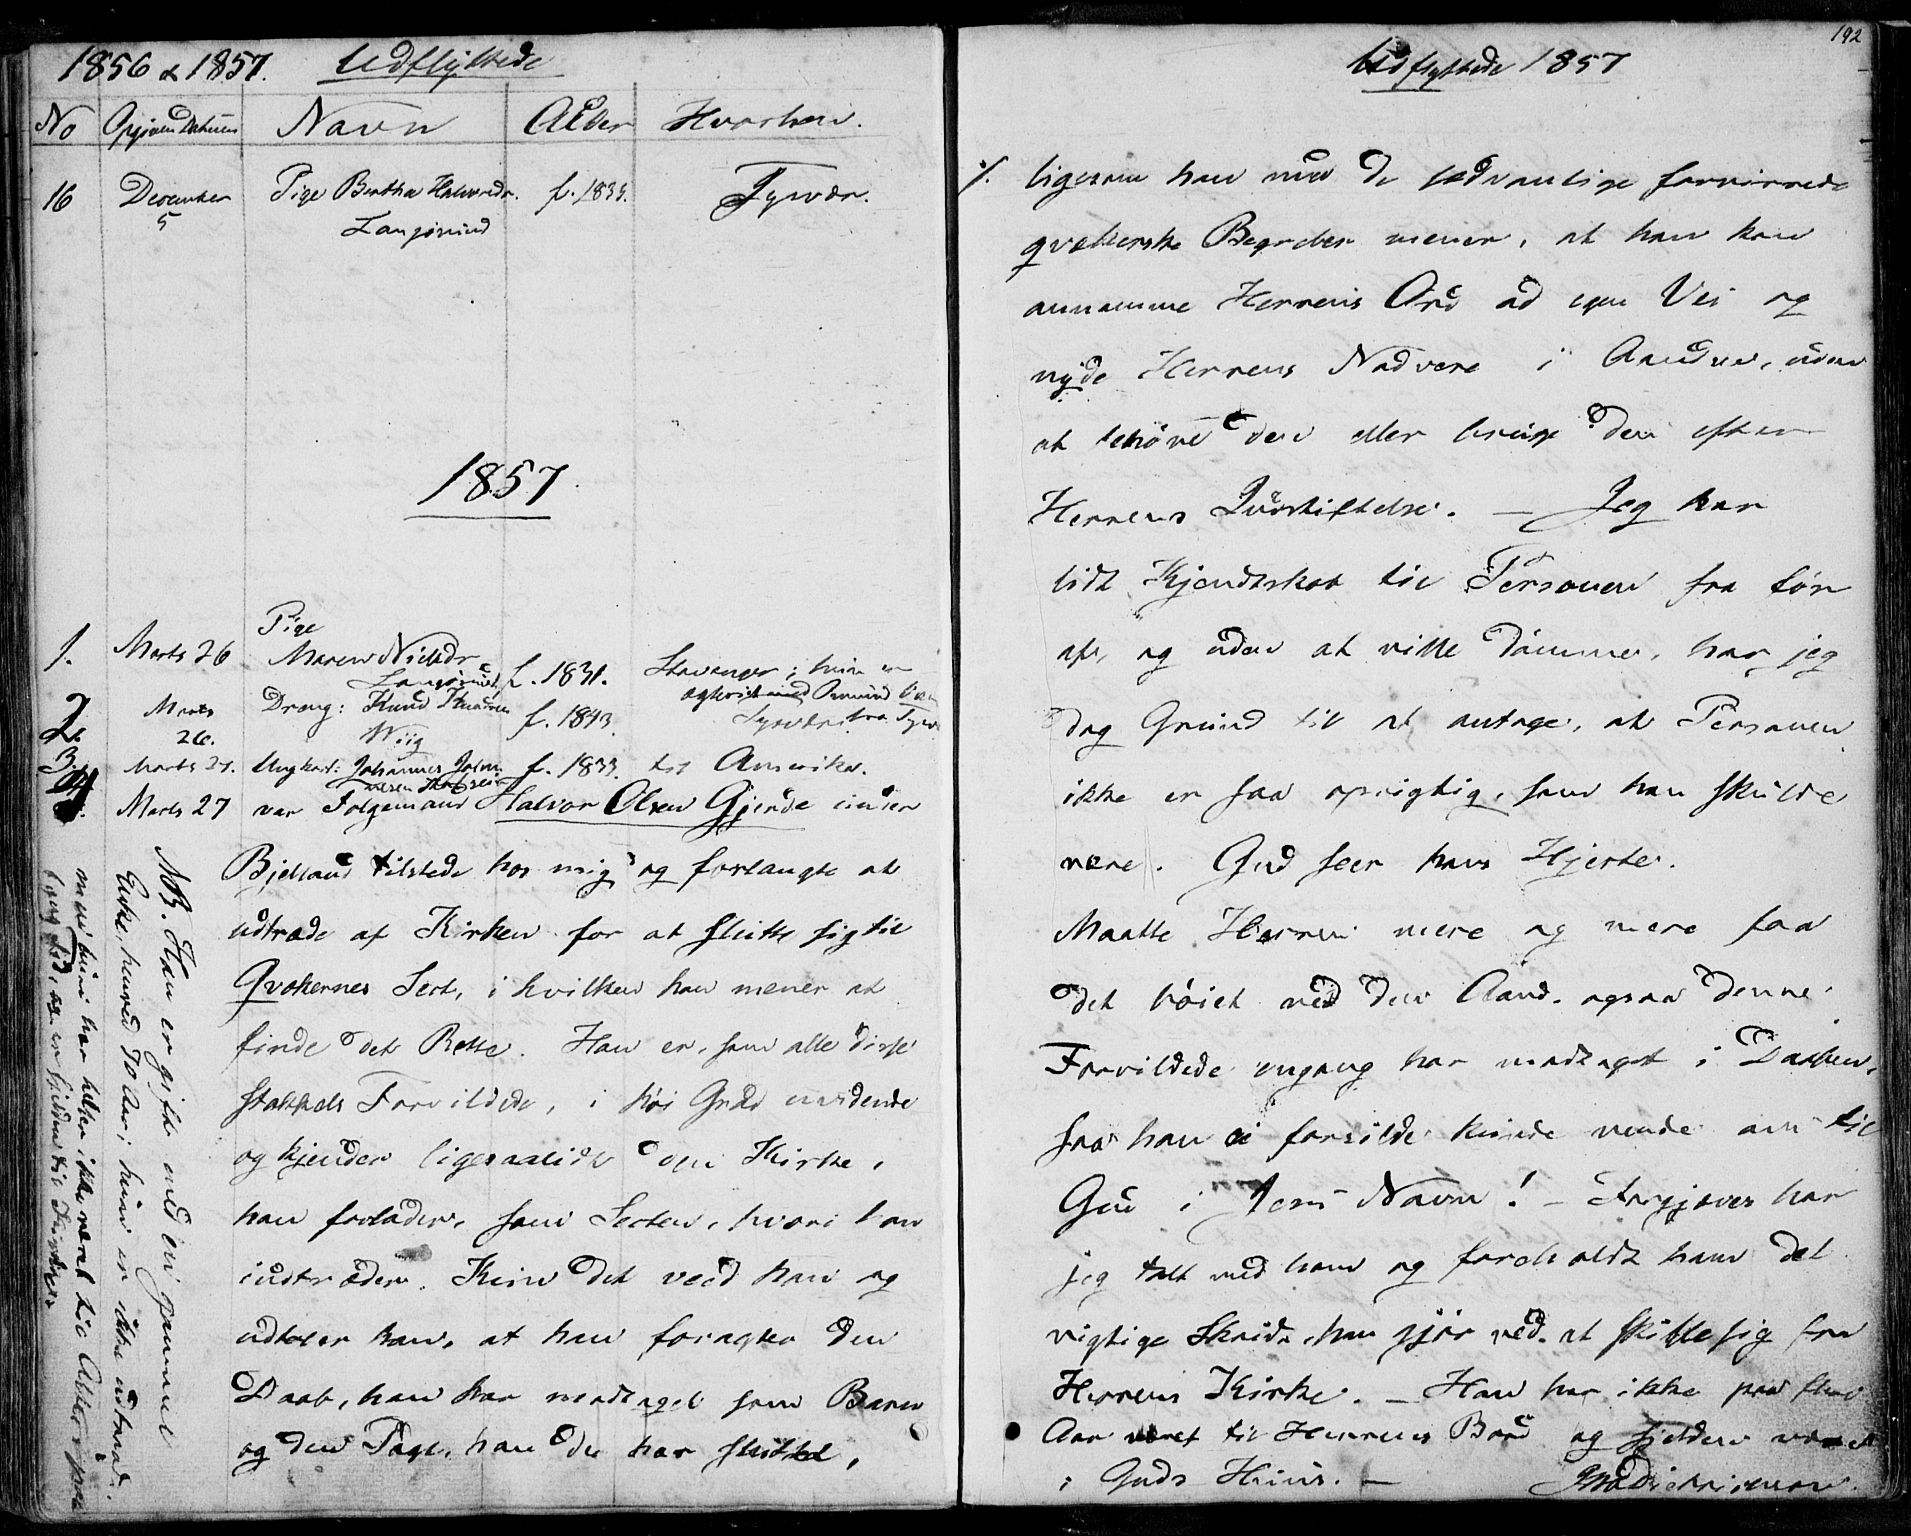 1856 & 1857. Udflyttede
No Opgiven Datum Navn Alder Hvorhen.
16 December 5 Pige Bertha Halvorsdr. Langøsund f. 1835. Tysvær.
1857
1. Marts 26 Pige Maren Nielsdr Langøsund f. 1831. Stavanger; hun er
ægteviet med
2. Marts 26. Dreng: Knud Knudsen Wiig f. 1843. Tysvær fra Tysv
3. Marts 27. Ungkarl: Johannes f. 1833. til Amerika.
4. Marts 27 var Folgemand Halvor Olsen Gjerde under
Bjelland tilstede hos mig og forlangte at
udtræde af Kirken for at slutte sig til
Qvækernes Sect, i hvilken han mener at
finde det Rette. Han er, som alle disse
stakkels Forvildede, i høi Grad uvidende
og kjender ligesaalidt den Kirke,
han forlader, som Secten, hvori han
indtræder. Kun det veed han og
udtaler han, at han foragter den
Daab, han har modtaget som Barn
og den Pagt, han da har sluttet,
NB. Han er gift med en gammel
Enke, henved 70 Aar; hun er ikke udtraadt,
men hun har heller ikke været til Alters paa
lang Tid, og er sjelden til Kirken.
192
Udflyttede 1857
ligesom han med de sædvanlige forvirrede
qvækerske Begreber mener, at han kan
annamme Herrens Ord ad egen Vei og
nyde Herrens Nadvere i Aanden, uden
at behøve den eller bruge den efter
Herrens Indstiftelse. — Jeg har
lidt Kjendskab til Personen fra før
af, og uden at ville dømme, har jeg
dog Grund til at antage, at Personen
ikke er saa oprigtig, som han skulde
være. Gud seer hans Hjerte.
Maatte Herren mere og mere faa
det bøiet ved den Aand, ogsaa denne
Forvildede engang har modtaget i Daaben,
saa han ei forsilde kunde vende om til
Gud i Jesu Navn! – Forgjæves har
jeg talt med ham og foreholdt ham det
vigtige Skridt, han gjør ved at skille sig fra
Herrens Kirke. — Han har ikke paa flere
Aar været til Herrens Bord og sjelden været
i Guds Huus. —